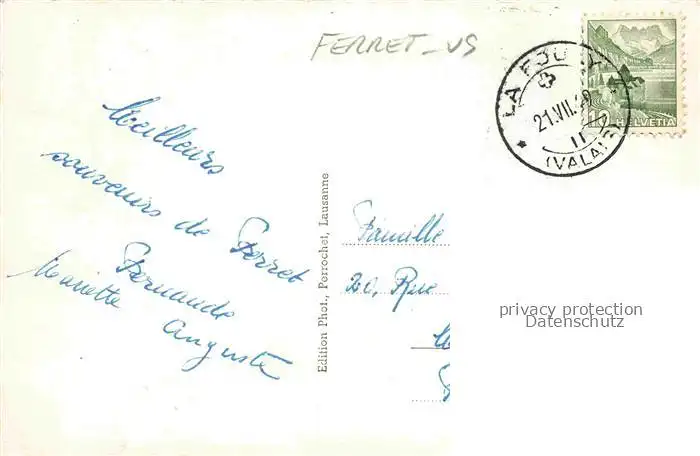 FERRET_VS
LA FOULY
21.VII.
(VALAIS)
10 HELVETIA
Meilleurs
souvenirs de Ferret
Fernande
Mariette
Auguste
Edition Phot., Perrochet, Lausanne
Famille
20, Rue
privacy protection
Datenschutz